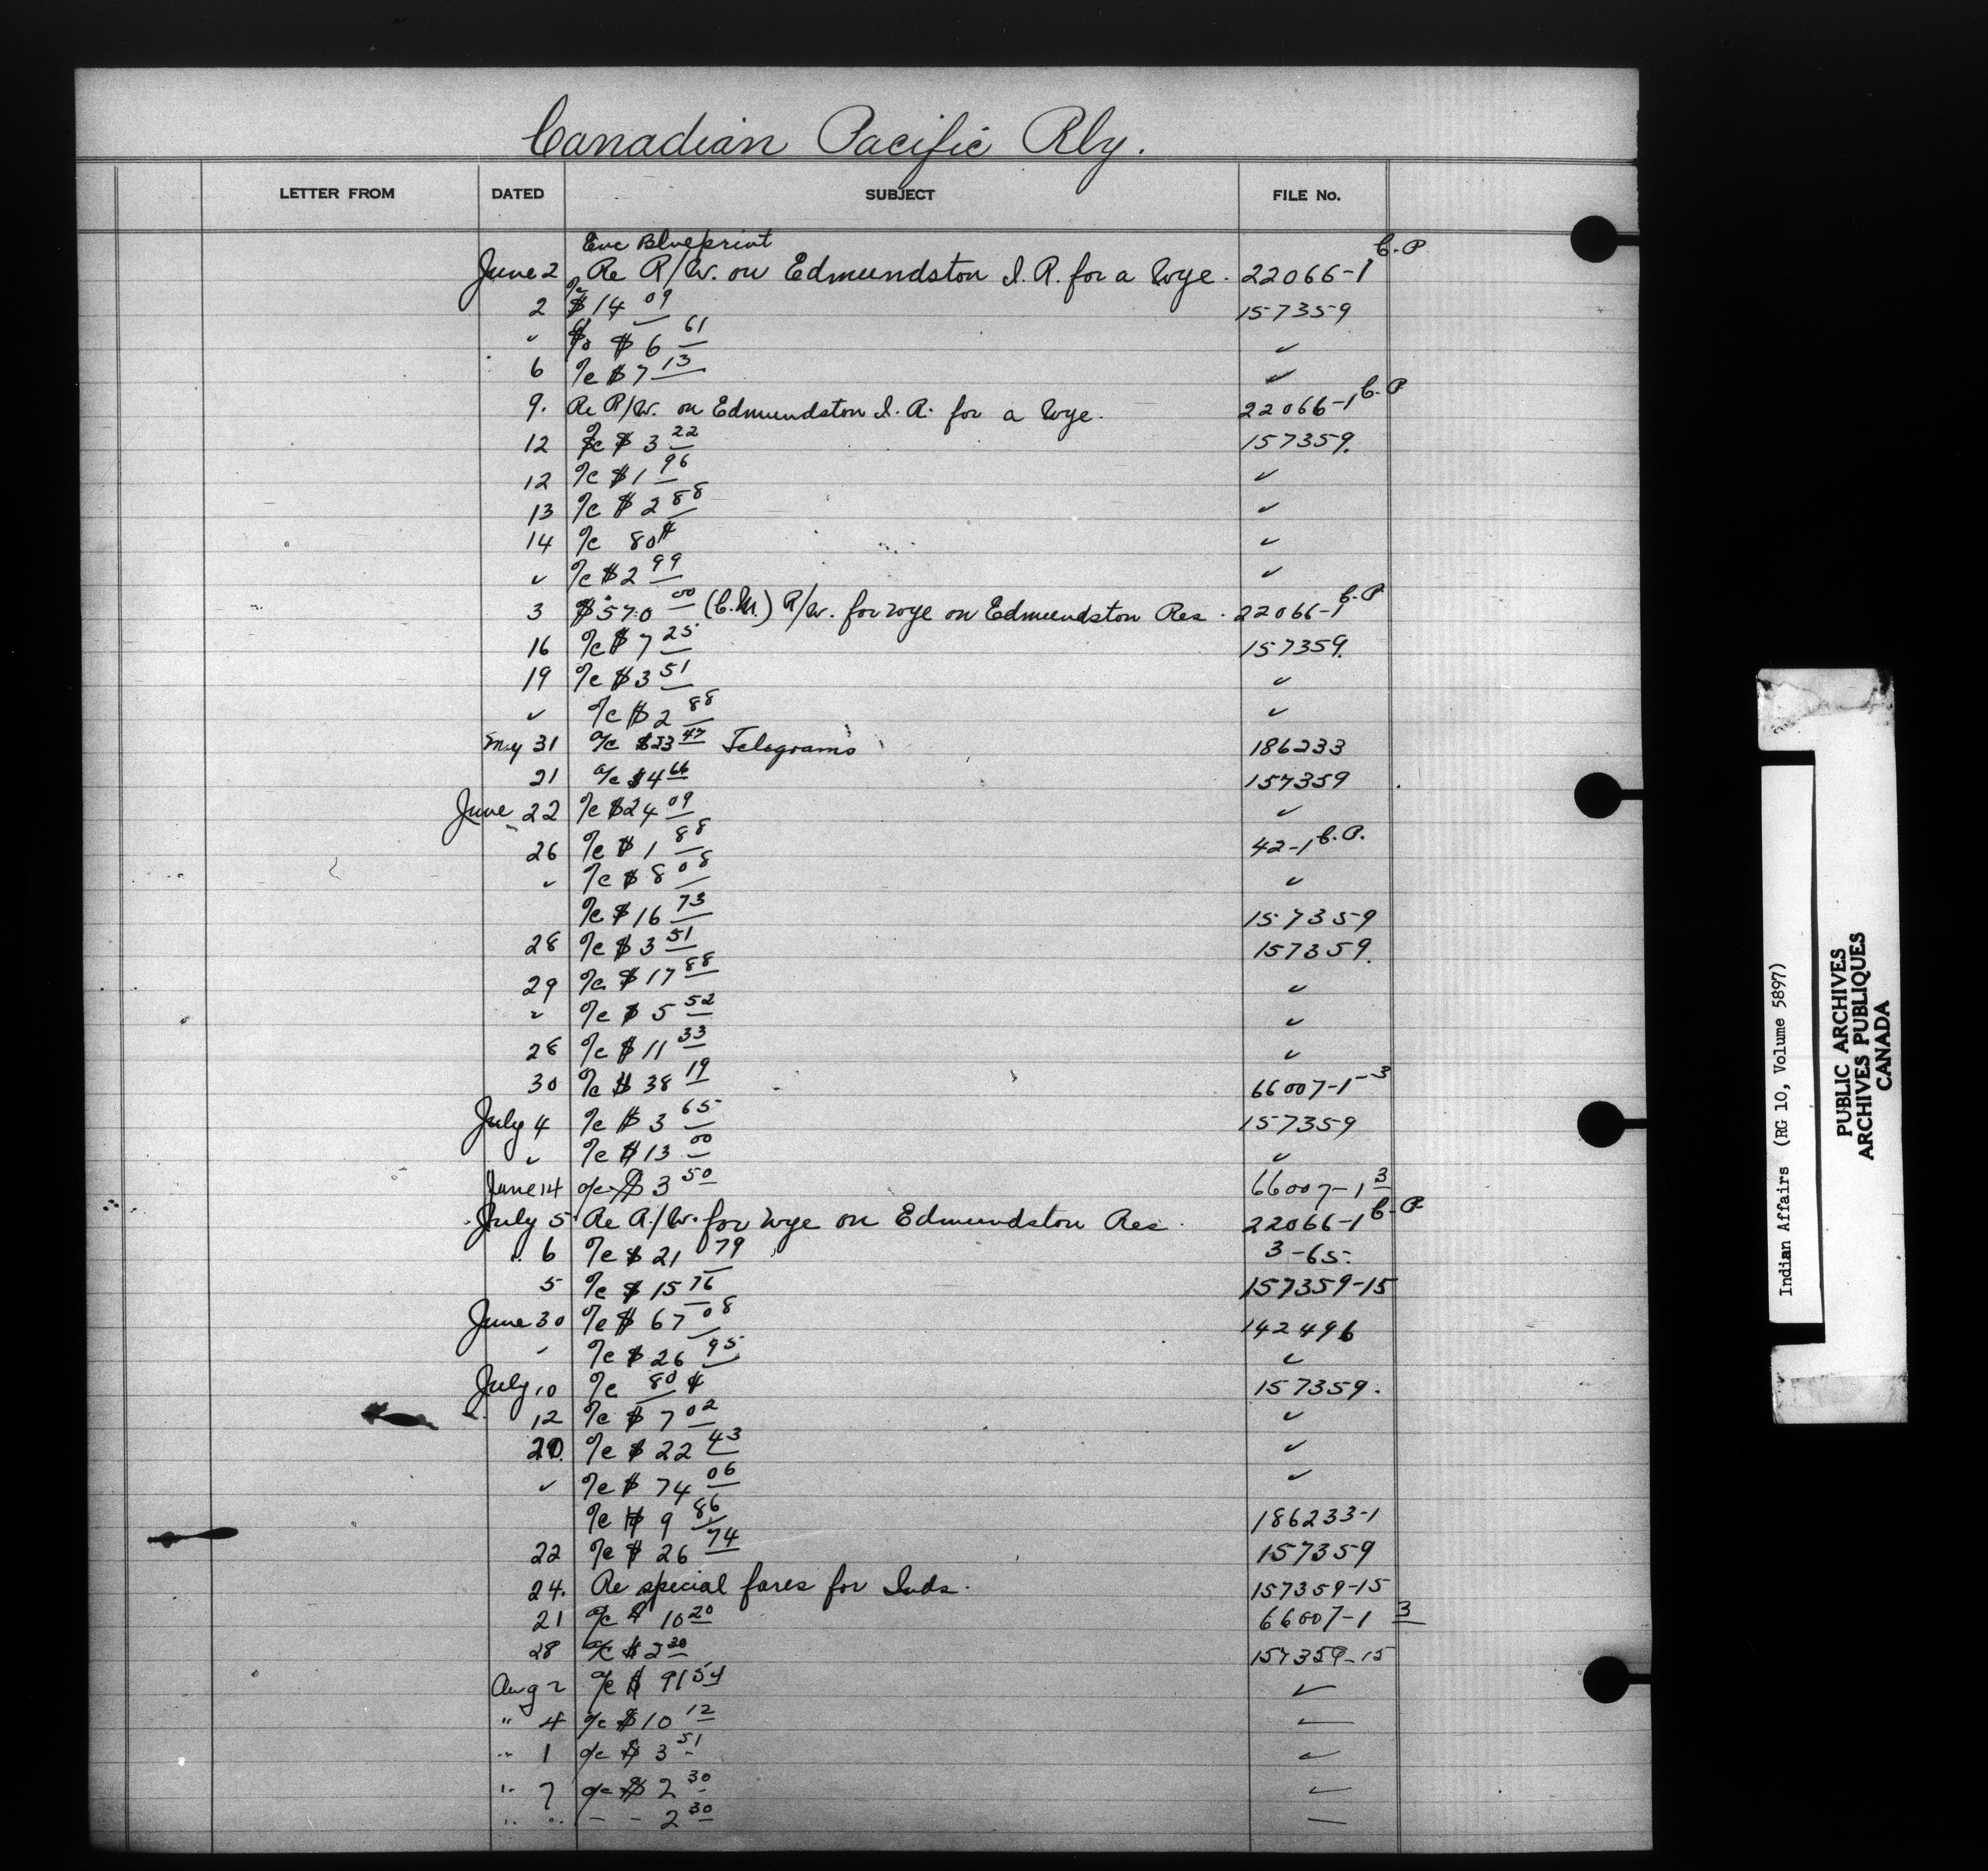 Canadian Pacific Rly.
LETTER FROM DATED SUBJECT FILE No.
Enc Blueprint
June 2 Re R/W. on Edmundston I. R. for a Wye. 22066-1 C.P
2 a/c $14 09 157359
✓ a/c $6 61 ✓
6 a/c $7 13 ✓
9. Re R/W. on Edmundston I. R. for a Wye. 22066-1 C.P
12 a/c $3 22 157359.
12 a/c $1 96 ✓
13 a/c $2 88 ✓
14 a/c 80¢ ✓
✓ a/c $2 99 ✓
3 $570 00 (C.M.) R/W. for Wye on Edmundston Res. 22066-1 C.P
16 a/c $7 25 157359.
19 a/c $3 51 ✓
✓ a/c $2 88 ✓
May 31 a/c $23 47 Telegrams 186233
21 a/c $4 66 157359
June 22 a/c $24 09 ✓
26 a/c $1 88 42-1 C.P.
✓ a/c $8 08 ✓
a/c $16 73 157359
28 a/c $3 51 157359.
29 a/c $17 88 ✓
✓ a/c $5 52 ✓
28 a/c $11 33 ✓
30 a/c $38 19 66007-1-3
July 4 a/c $3 65 157359
✓ a/c $13 00 ✓
June 14 a/c $3 50 66007-1 3
July 5 Re R/W. for Wye on Edmundston Res. 22066-1 C.P
" 6 a/c $21 79 3-65.
5 a/c $15 76 157359-15
June 30 a/c $67 08 142496
✓ a/c $26 95 ✓
July 10 a/c 80¢ 157359.
12 a/c $7 02 ✓
20. a/c $22 43 ✓
✓ a/c $74 06 ✓
a/c $9 86 186233-1
22 a/c $26 74 157359
24. Re special fares for Inds. 157359-15
21 a/c $10 20 66007-1 3
28 a/c $2 30 157359-15
Aug 2 a/c $91 54 ✓
" 4 a/c $10 12 ✓
" 1 a/c $3 51 ✓
" 7 a/c $2 30 ✓
" " - - 2 30 —
Indian Affairs (RG 10, Volume 5897)
PUBLIC ARCHIVES
ARCHIVES PUBLIQUES
CANADA